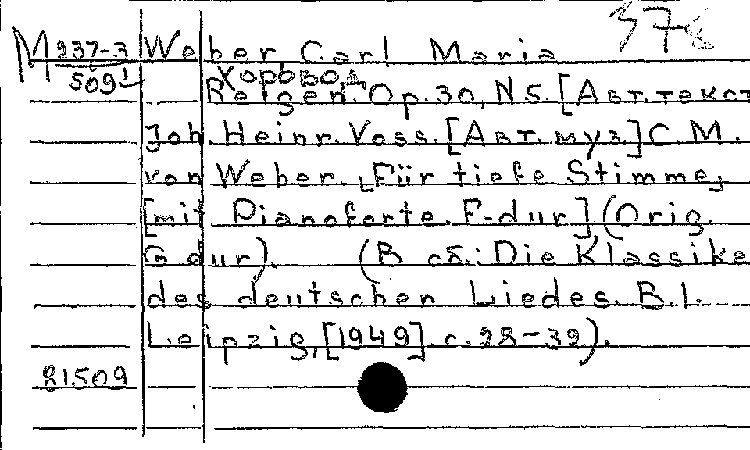 M 237-3 Weber Carl Maria
5091 Хоровод
Reigen. Op. 30, N 5. [Авт. текст
Joh. Heinr. Voss. [Авт. муз.] C. M.
von Weber. „Für tiefe Stimme„
[mit Pianoforte. F-dur] (Orig.
G dur). (В сб.: Die Klassike
des deutschen Liedes. B. I.
Leipzig, [1949] с. 28-32).
81509